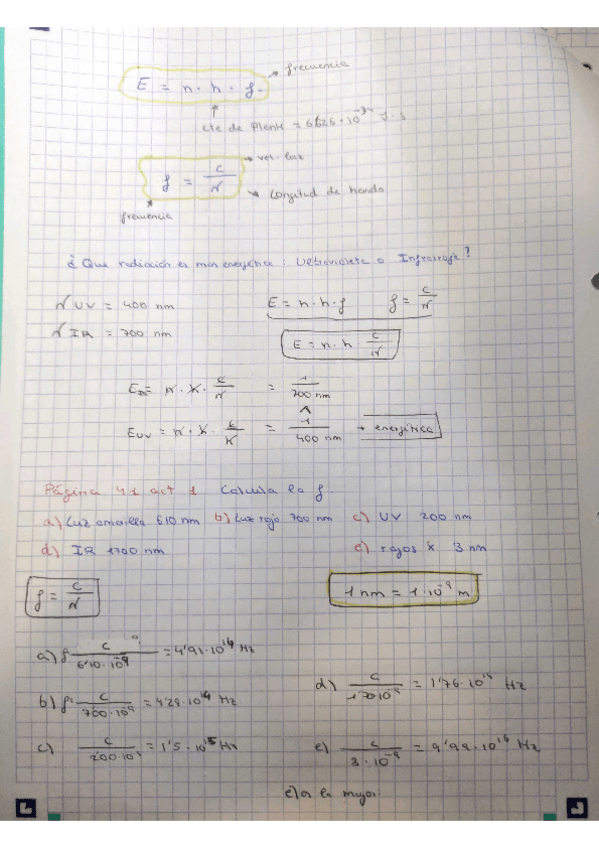 frecuencia
E = n · h · f.
cte de Plank = 6'626 · 10^-34 J · s
vel. luz
f = c/λ
longitud de honda
frecuencia
¿Que radiación es mas energética: Ultravioleta o Infrarroja?
λ UV = 400 nm E = n · h · f f = c/λ
λ IR = 700 nm
E = n · h · c/λ
E IR = n · h · c/λ = 1/700 nm
^
E UV = n · h · c/λ = 1/400 nm → energética
Página 41 act 1 Calcula la f.
a) Luz amarilla 610 nm b) Luz roja 700 nm c) UV 200 nm
d) IR 1700 nm e) rayos X 3 nm
f = c/λ 1 nm = 1 · 10^-9 m
a) f = c/610 · 10^-9 = 4'91 · 10^14 Hz
b) f = c/700 · 10^-9 = 4'29 · 10^14 Hz
c) c/200 · 10^-9 = 1'5 · 10^15 Hz
d) c/1700 · 10^-9 = 1'76 · 10^14 Hz
e) c/3 · 10^-9 = 9'99 · 10^16 Hz
e) es la mayor.